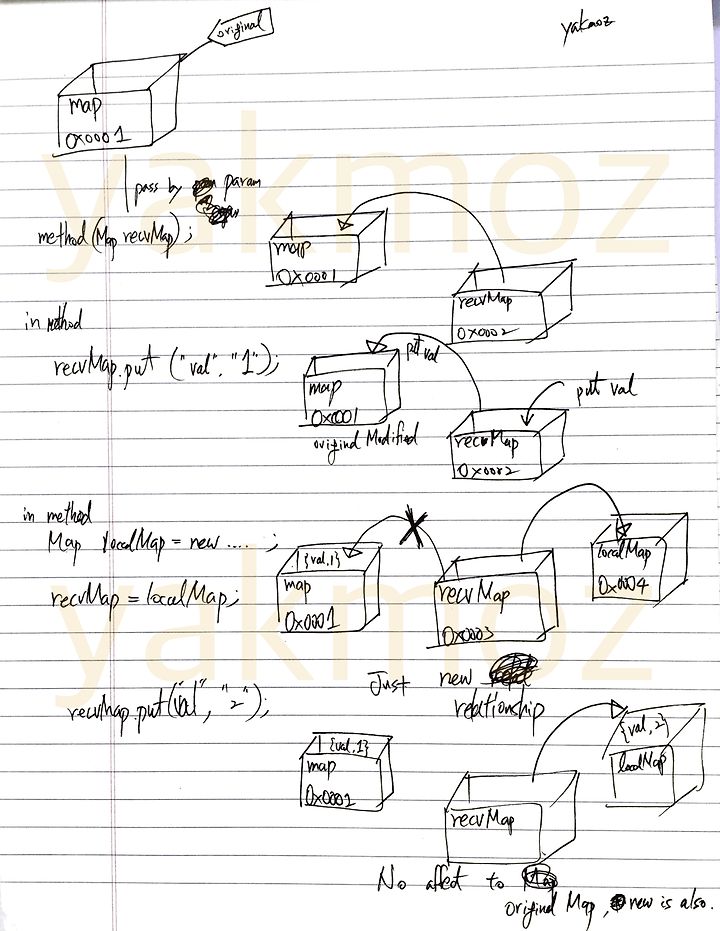 original
yakmoz
map
0x0001
pass by param
method(Map recvMap);
map
0x0001
recvMap
0x0002
in method
recvMap.put ("val", "1");
put val
map
0x001
original Modified
put val
recvMap
0x0002
in method
Map localMap = new .... ;
recvMap = localMap;
{val,1}
map
0x0001
recvMap
0x0003
localMap
0x0004
Just new
relationship
recvMap.put("val", "2");
{val,1}
map
0x0001
recvMap
{val,2}
localMap
No affect to
original Map, new is also.
yakmoz
yakmoz